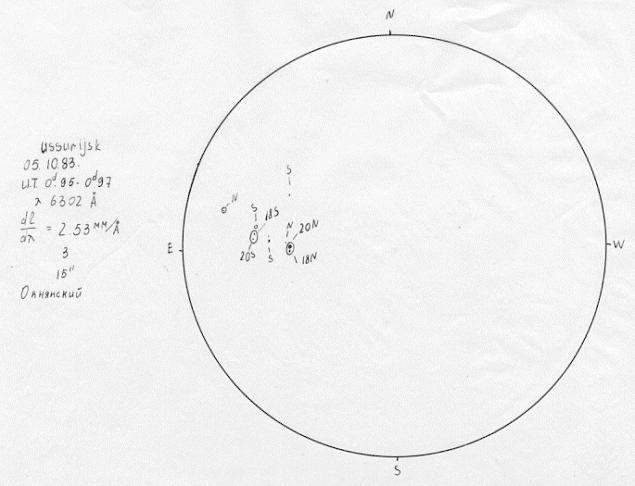 N
Ussurijsk
05.10.83.
U.T. 0ᵈ.95-0ᵈ97
λ 6302 Å
dl/dλ = 2.53 мм/Å
3
15"
S
N
S
18S
20S
S
N
20N
18N
E
W
S